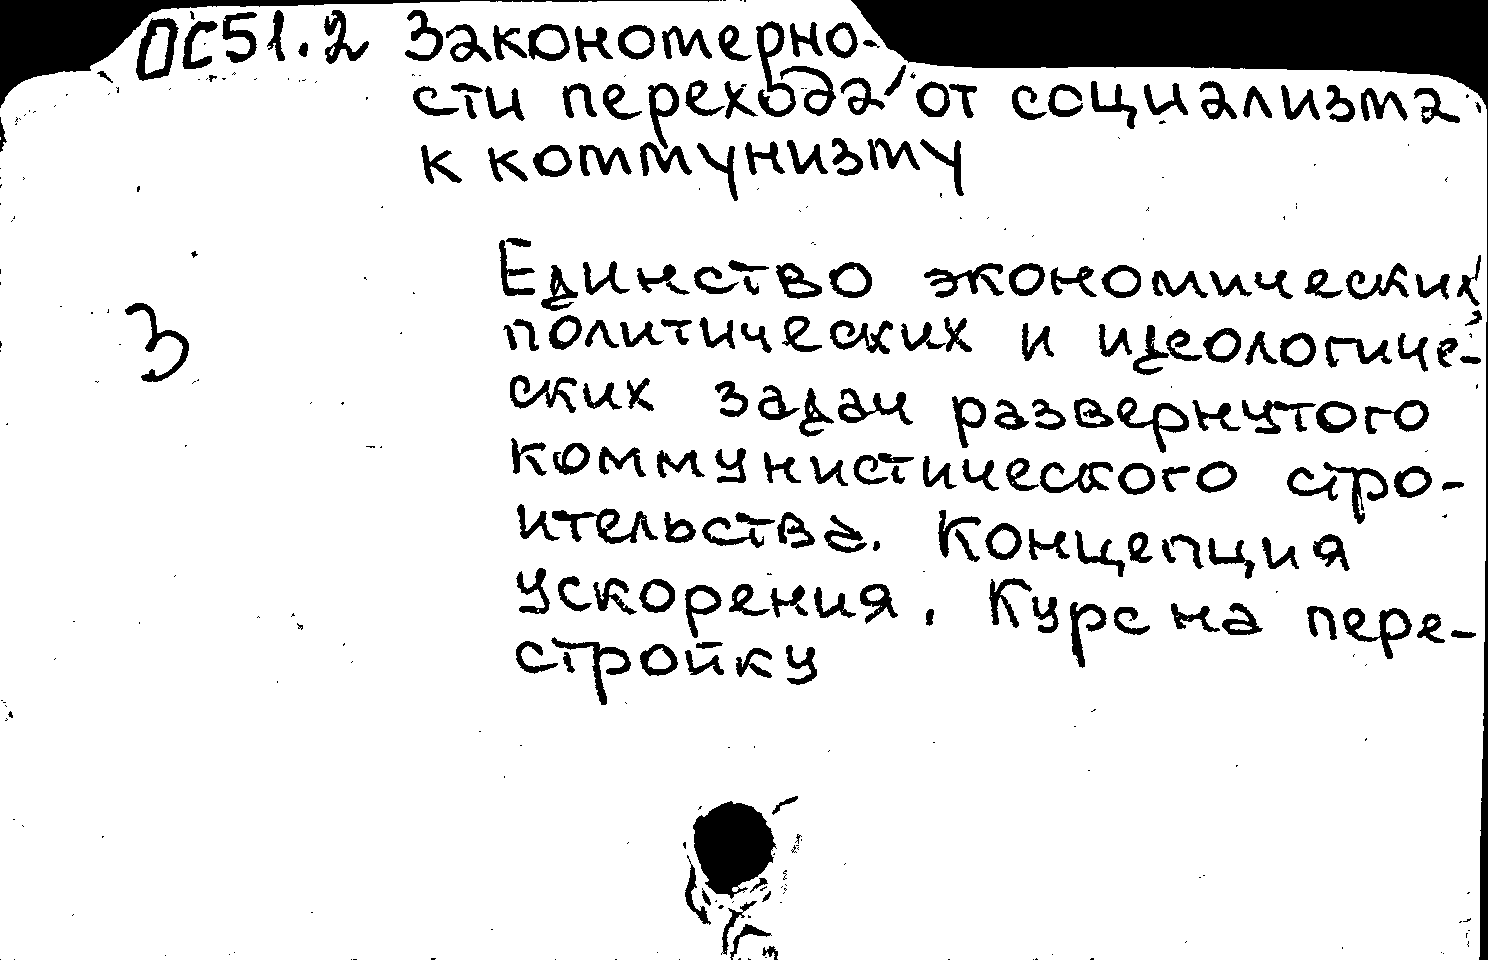 ОС51.2 Закономерно-
сти перехода от социализма
к коммунизму
Единство экономических,
политических и идеологиче-
3
ских задач развернутого
коммунистического стро-
ительства. Концепция
ускорения. Курс на пере-
стройку